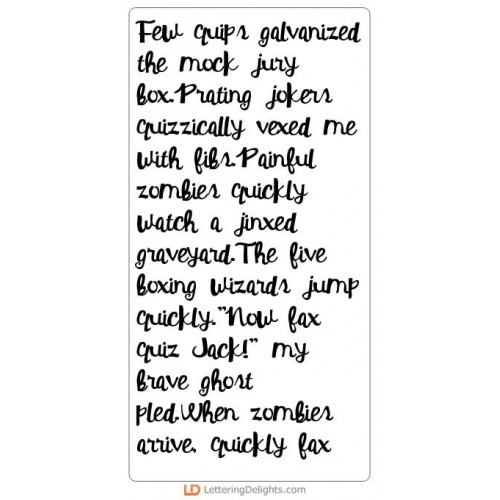 Few quips galvanized
the mock jury
box.Prating jokers
quizzically vexed me
with fibs.Painful
zombies quickly
watch a jinxed
graveyard.The five
boxing wizards jump
quickly."Now fax
quiz Jack!" my
brave ghost
pled.When zombies
arrive, quickly fax
LD LetteringDelights.com